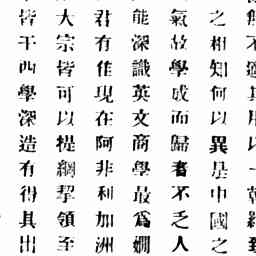 不適其用以一朝羅致
之相知何以異是中國之
氣故學成而歸者不乏人
能深識英文商學最爲嫺
君有佳現在阿非利加洲
大宗皆可以提綱挈領至
皆于西學深造有得其出